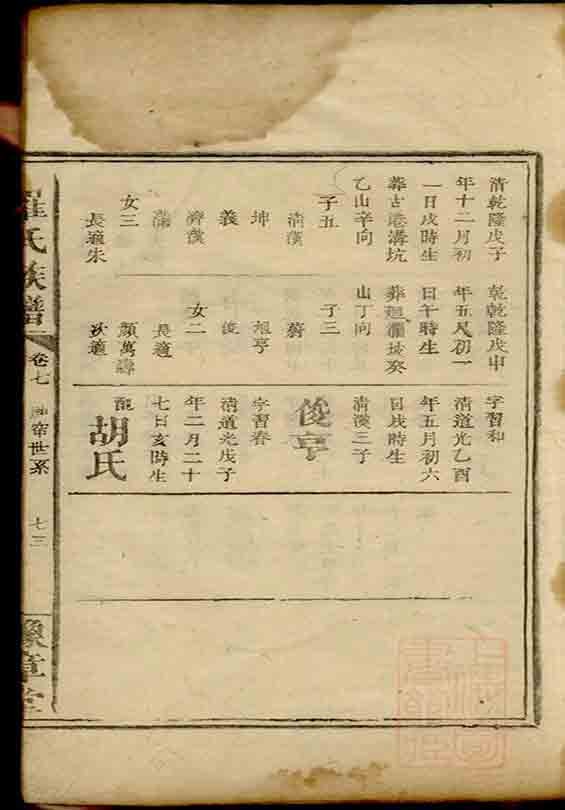 清乾隆戊子
年十二月初
一日戌時生
葬古港溝坑
乙山辛向
子五
清漢
坤
義
濟漢
蒲
女三
長適朱
乾隆戊申
年五月初一
日午時生
山丁向
子三
蒭
旭亨
俊
女二
長適
顏萬
次適
字習和
清道光乙酉
年五月初六
日戌時生
清漢三子
俊亨
字習春
清道光戊子
年二月二十
七日亥時生
配胡氏
羅氏族譜
卷七
世系
七三
豫章堂